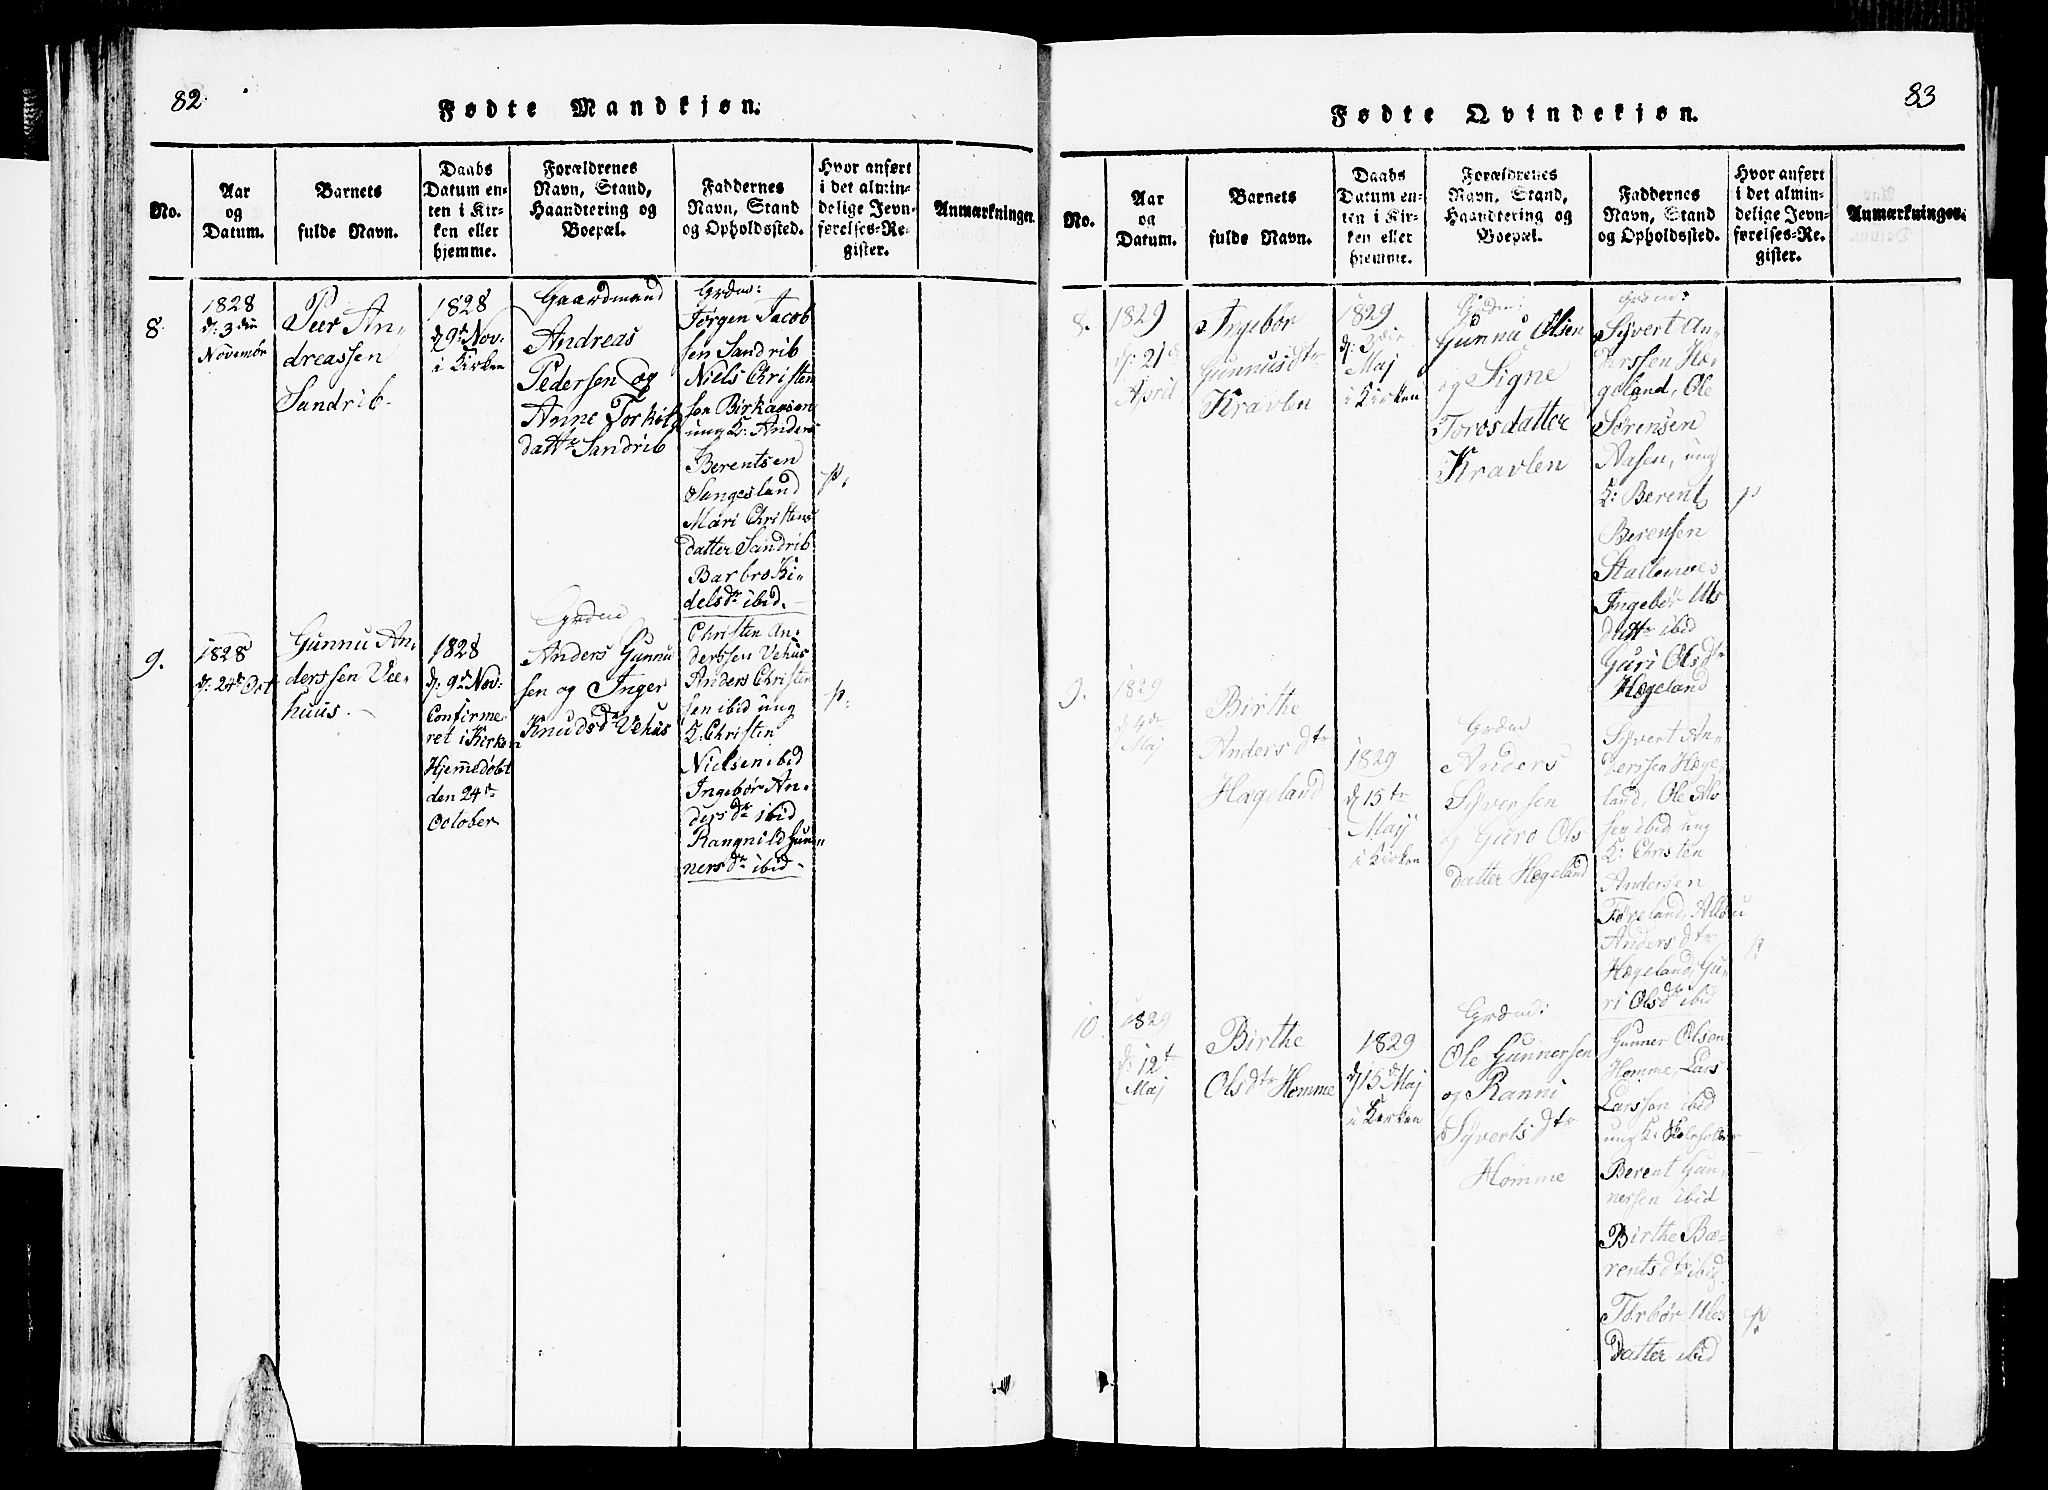 82.
Fødte Mandkjøn.
No.
Aar
og
Datum.
Barnets
fulde Navn.
Daabs
Datum en-
ten i Kir-
ken eller
hjemme.
Forældrenes
Navn, Stand,
Haandtering og
Boepæl.
Faddernes
Navn, Stand
og Opholdssted.
Hvor anført
i det almin-
delige Jevn-
førelses-Re-
gister.
Anmærkninger.
8
1828
d: 3die
Novembr
Peer An-
dreassen
Sandrib.
1828
d 9d Nov:
i Kirken
Gaardmand
Andreas
Pedersen og
Anne Torkils
dattr Sandrib
Grdm:
Jørgen Jacob
sen Sandrib
Niels Christen
sen Birkenien
ung K: Anders
Berentsen
Sangesland
Mari Christens
datter Sandrib
Barbro Ki-
delsdr ibid.
p.
9.
1828
d: 24de Oct
Gunnu An-
derssen Vee-
huus.
1828
d: 9d Nov:
Confirme
ret i Kirken
Hjemedøbt
den 24de
October
Grdm
Anders Gunnu
sen og Inger
Knudsdr Vehus
Christen An-
derssen Vehus
Anders Christen
sen ibid ung
K: Christen
Nielsen ibid
Ingebør An-
dersdr ibid
Rangnild Gun
nersdr ibid.
p.
83
Fødte Qvindekjøn.
No.
Aar
og
Datum.
Barnets
fulde Navn.
Daabs
Datum en-
ten i Kir-
ken eller
hjemme.
Forældrenes
Navn, Stand,
Haandtering og
Boepæl.
Faddernes
Navn, Stand
og Opholdssted.
Hvor anført
i det almin-
delige Jevn-
førelses-Re-
gister.
Anmærkninger.
8.
1829
d: 21de
April
Ingebør
Gunnusdtr
Kravlen
1829
d: 3die
Maj
i Kirken
Grdm:
Gunnu Olsen
og Signe
Torosdatter
Kravlen
Grdm:
Syvert An-
derssen Hæ-
geland, Ole
Sørensen
Aasen, ung
K: Berent
Berensen
Stallemoes
Ingebør Uls
dattr ibid
Guri Olsdtr
Hægeland
p
9.
1829
d 4de
Maj
Birthe
Andersdtr
Hægeland
1829
d 15te
Maij
i Kirken
Grdm
Anders
Syversen
og Guro Ols
datter Hægeland
Syvert An-
derssen Hæge-
land, Ole Alv
sen ibid ung
K: Christen
Andersen
Føreland,
Andersdtr
Hægeland, Gu-
ri Olsdtr ibid
p
10
1829
d: 12te
Maj
Birthe
Olsdtr Homme
1829
d 15d Maj
i Kirken
Grdm:
Ole Gunnersen
og Ranni
Syvertsdtr
Homme
Gunner Olsen
Homme, Lars
Larssen ibid
ung K: Skoleholder
Berent Gun-
nersen ibid
Birthe Bæ-
rentsdtr ibid
Torbør Uls
datter ibid
p.